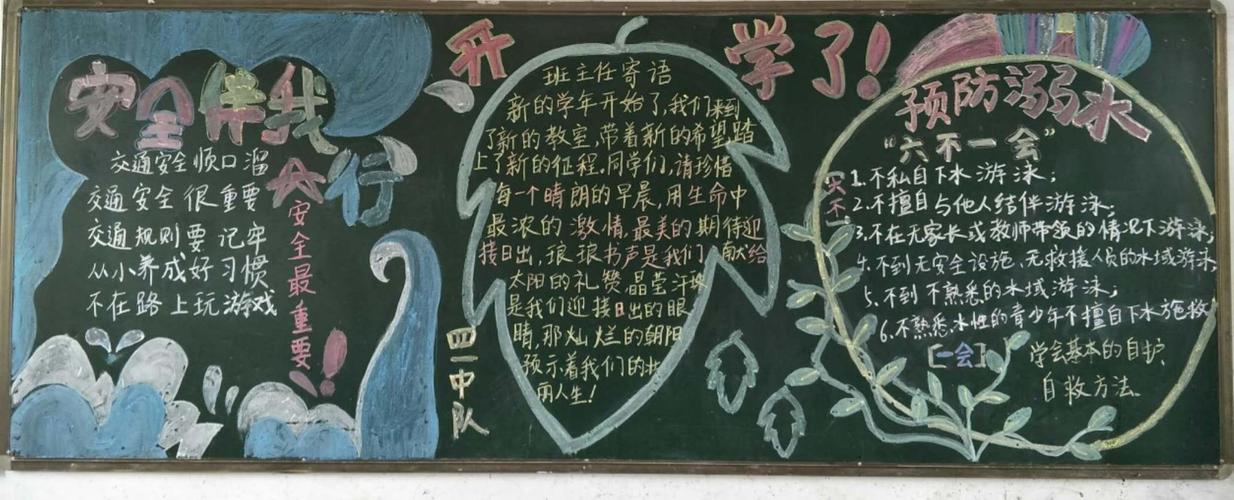 安全伴我
行
交通安全顺口溜
交通安全很重要
交通规则要记牢
从小养成好习惯
不在路上玩游戏
安全最重要!
开学了!
班主任寄语
新的学年开始了,我们来到
了新的教室,带着新的希望踏
上了新的征程,同学们,请珍惜
每一个晴朗的早晨,用生命中
最浓的激情,最美的期待迎
接日出,琅琅书声是我们献给
太阳的礼赞,晶莹汗珠
是我们迎接日出的眼
睛,那灿烂的朝阳
预示着我们的壮
丽人生!
四一中队
预防溺水
"六不一会"
六不
1.不私自下水游泳;
2.不擅自与他人结伴游泳;
3.不在无家长或教师带领的情况下游泳;
4.不到无安全设施、无救援人员的水域游泳
5.不到不熟悉的水域游泳;
6.不熟悉水性的青少年不擅自下水施救
[一会]
学会基本的自护、
自救方法。